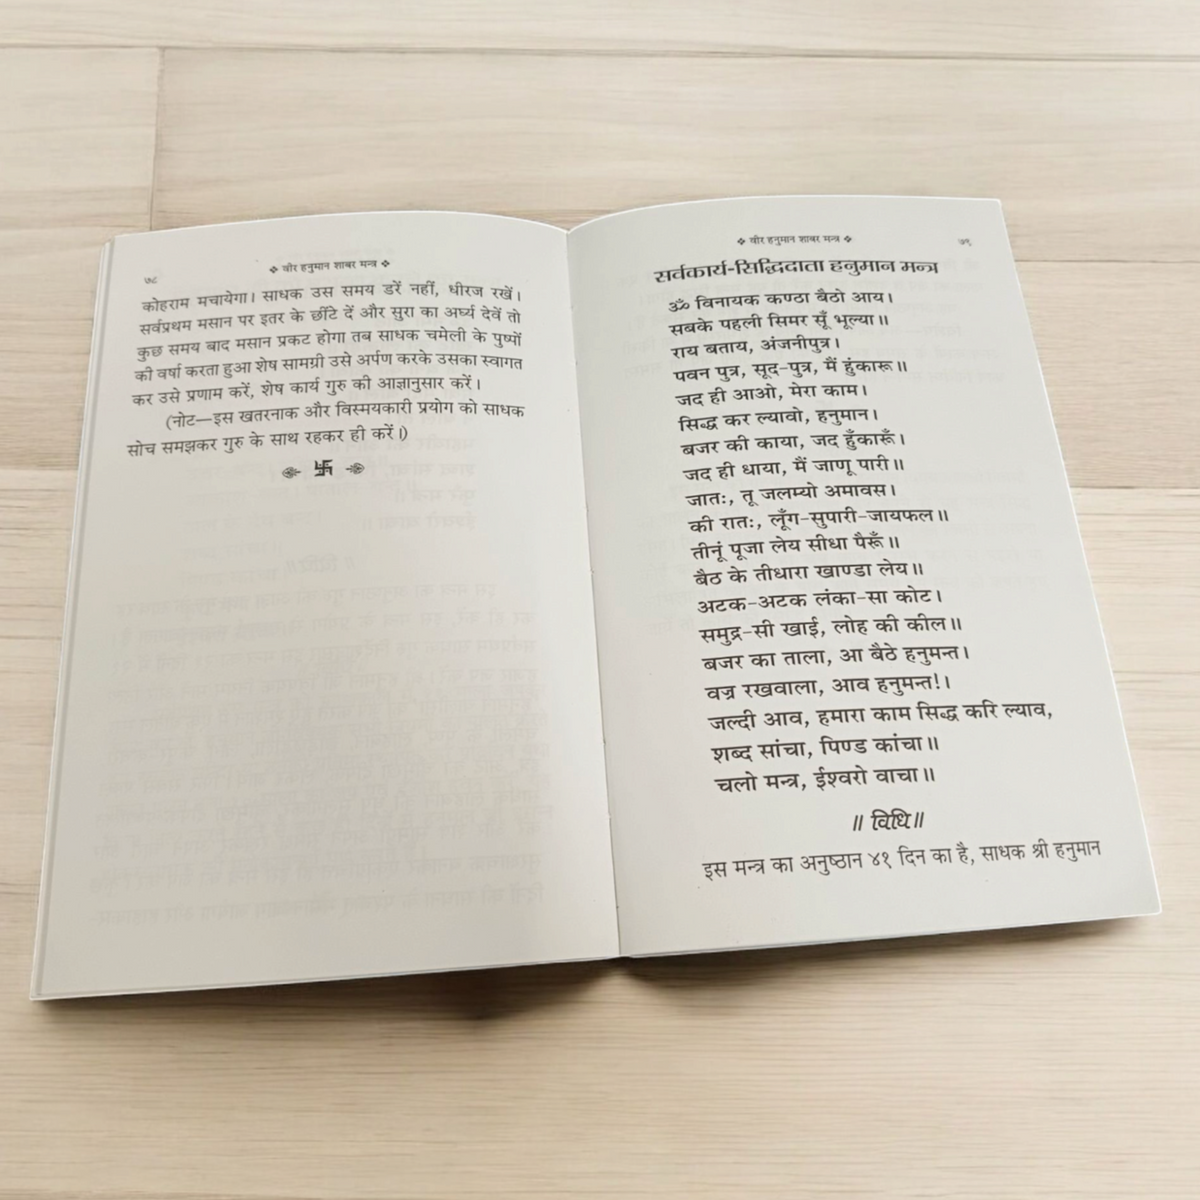 ७८
❖ वीर हनुमान शाबर मन्त्र ❖
कोहराम मचायेगा। साधक उस समय डरें नहीं, धीरज रखें।
सर्वप्रथम मसान पर इतर के छींटे दें और सुरा का अर्घ्य देवें तो
कुछ समय बाद मसान प्रकट होगा तब साधक चमेली के पुष्पों
की वर्षा करता हुआ शेष सामग्री उसे अर्पण करके उसका स्वागत
कर उसे प्रणाम करें, शेष कार्य गुरु की आज्ञानुसार करें।
(नोट—इस खतरनाक और विस्मयकारी प्रयोग को साधक
सोच समझकर गुरु के साथ रहकर ही करें।)
❖ वीर हनुमान शाबर मन्त्र ❖
७९
सर्वकार्य-सिद्धिदाता हनुमान मन्त्र
ॐ विनायक कण्ठा बैठो आय।
सबके पहली सिमर सूँ भूल्या॥
राय बताय, अंजनीपुत्र।
पवन पुत्र, सूद-पुत्र, मैं हुंकारू॥
जद ही आओ, मेरा काम।
सिद्ध कर ल्यावो, हनुमान।
बजर की काया, जद हुँकारूँ।
जद ही धाया, मैं जाणू पारी॥
जातः, तू जलम्यो अमावस।
की रातः, लूँग-सुपारी-जायफल॥
तीनूं पूजा लेय सीधा पैरूँ॥
बैठ के तीधारा खाण्डा लेय॥
अटक-अटक लंका-सा कोट।
समुद्र-सी खाई, लोह की कील॥
बजर का ताला, आ बैठे हनुमन्त।
वज्र रखवाला, आव हनुमन्त!।
जल्दी आव, हमारा काम सिद्ध करि ल्याव,
शब्द सांचा, पिण्ड कांचा॥
चलो मन्त्र, ईश्वरो वाचा॥
॥ विधि॥
इस मन्त्र का अनुष्ठान ४१ दिन का है, साधक श्री हनुमान